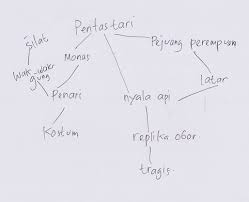 Pentastari
Silat
Monas
Pejuang perempuan
Wak-wak
gung
latar
Penari
nyala api
Kostum
replika obor
tragis